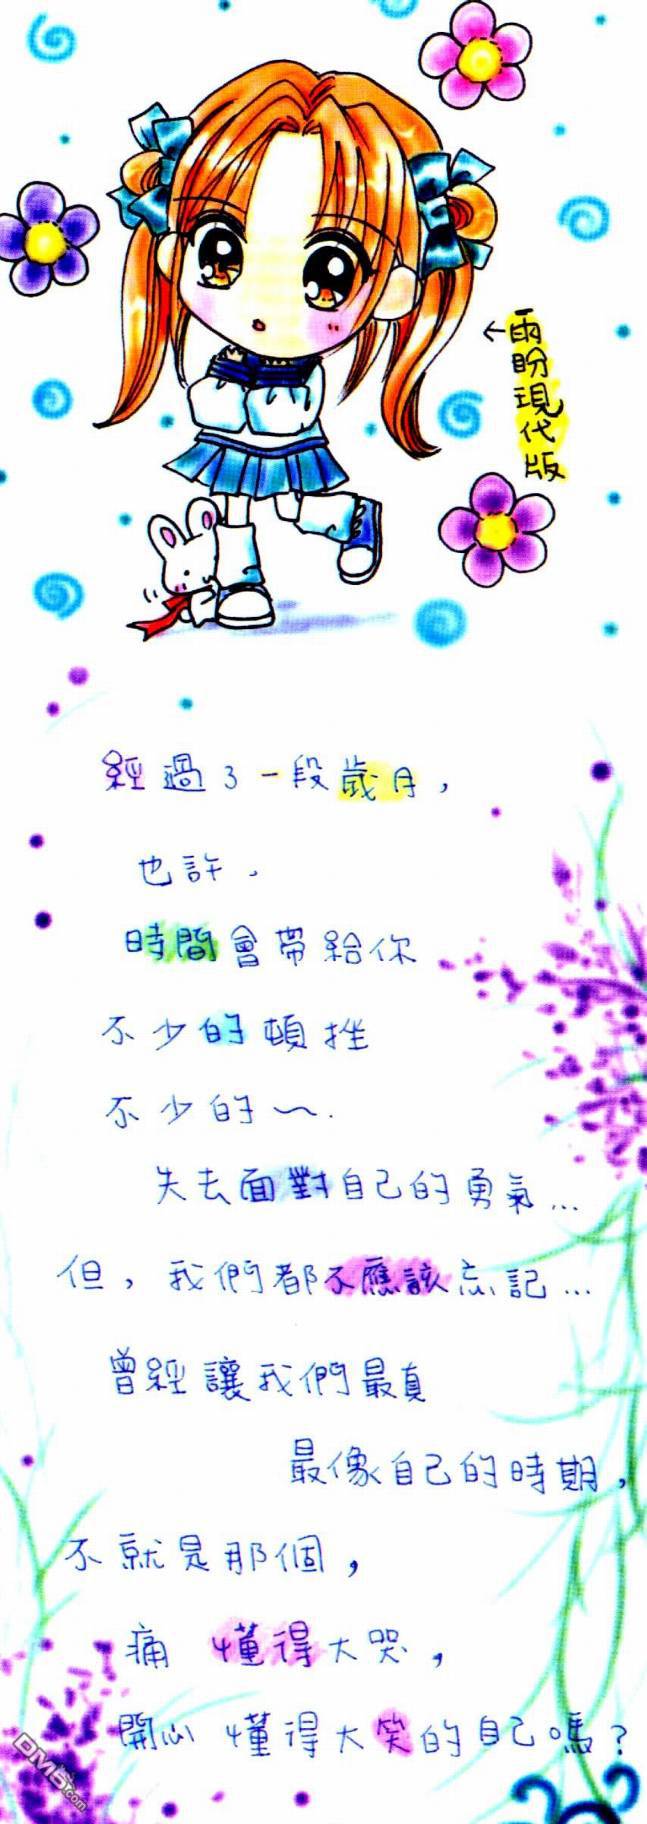 ←雨盼現代版
經過了一段歲月，
也許，
時間會帶給你
不少的頓挫
不少的～.
失去面對自己的勇氣…
但，我們都不應該忘記…
曾經讓我們最真
最像自己的時期，
不就是那個，
痛 懂得大哭，
開心 懂得大笑的自己嗎？
DM5.com